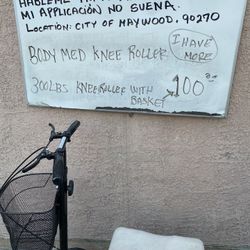 MI APPLICACIÓN NO SUENA.
LOCATION: CITY OF MAYWOOD, 90270
BODY MED KNEE ROLLER
I HAVE MORE
300LBS KNEE ROLLER WITH BASKET
$100